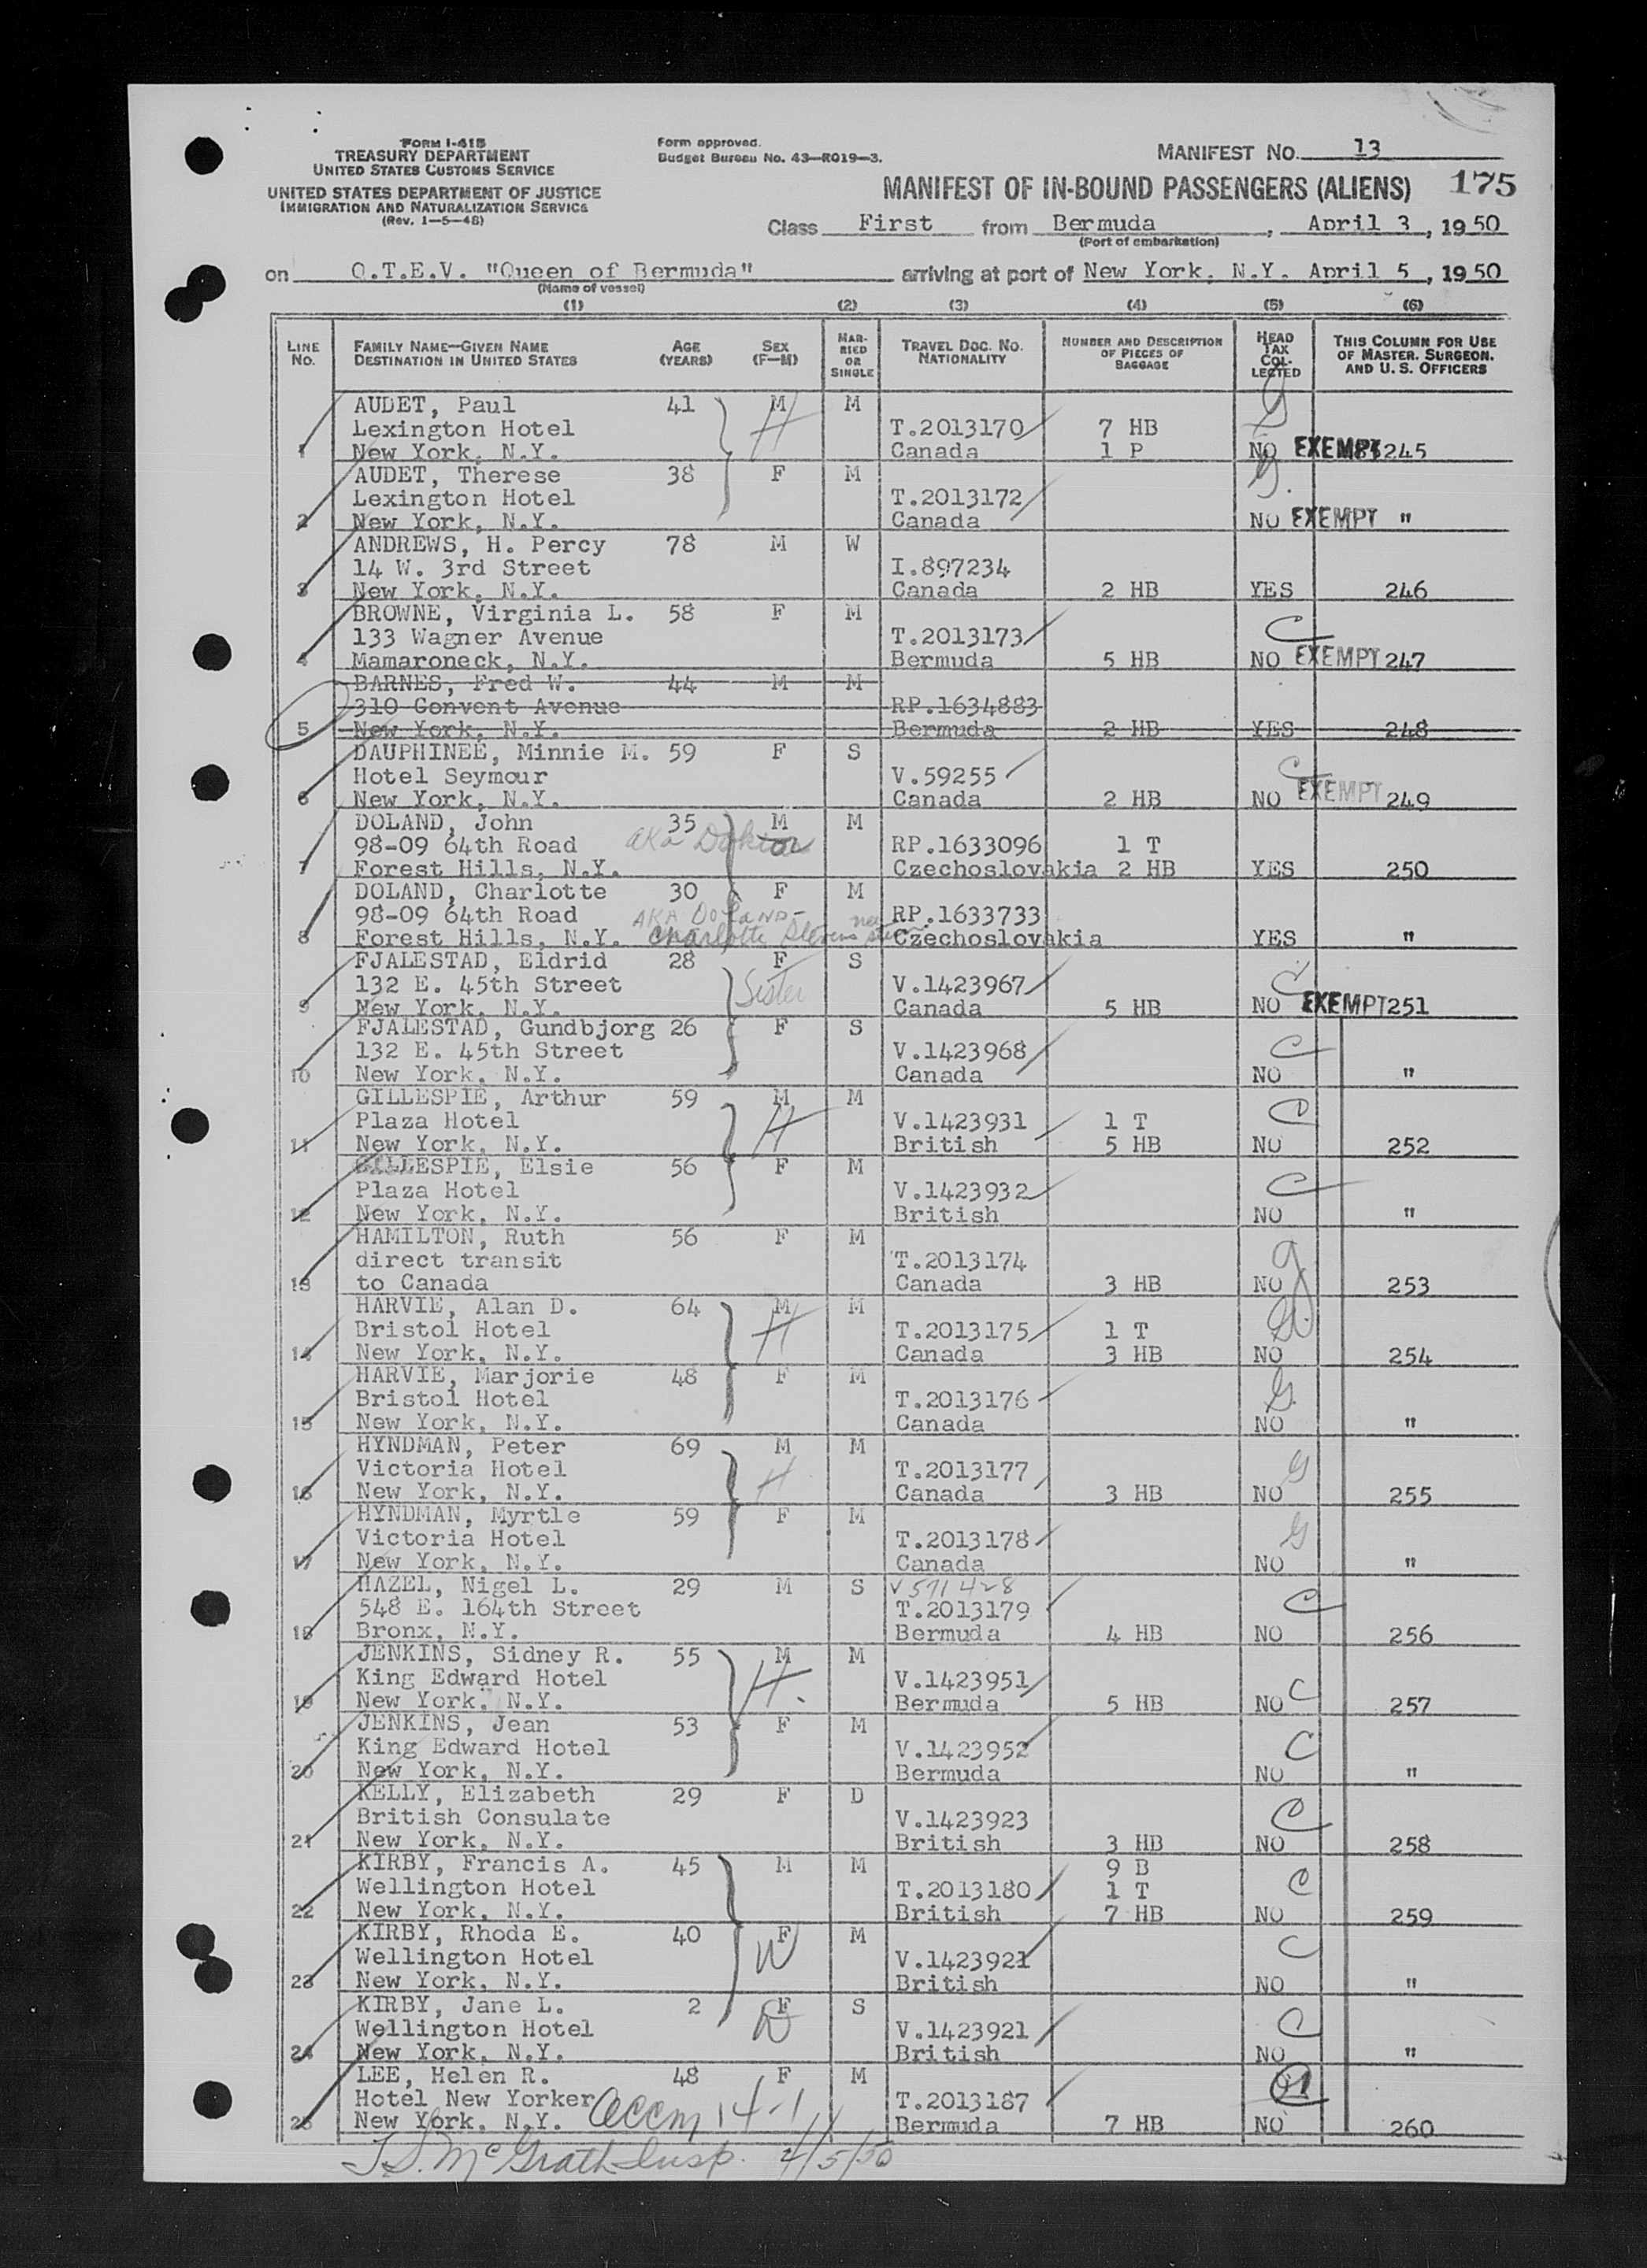 FORM I-415
TREASURY DEPARTMENT
UNITED STATES CUSTOMS SERVICE
UNITED STATES DEPARTMENT OF JUSTICE
IMMIGRATION AND NATURALIZATION SERVICE
(Rev. 1—5—48)
Form approved.
Budget Bureau No. 43—R019—3.
MANIFEST NO. 13
MANIFEST OF IN-BOUND PASSENGERS (ALIENS) 175
Class First from Bermuda, April 3, 1950
(Port of embarkation)
on Q.T.E.V. "Queen of Bermuda" arriving at port of New York, N.Y. April 5, 1950
(Name of vessel)
(1) (2) (3) (4) (5) (6)
LINE NO. FAMILY NAME—GIVEN NAME DESTINATION IN UNITED STATES AGE (YEARS) SEX (F—M) MARRIED OR SINGLE TRAVEL DOC. NO. NATIONALITY NUMBER AND DESCRIPTION OF PIECES OF BAGGAGE HEAD TAX COLLECTED THIS COLUMN FOR USE OF MASTER, SURGEON, AND U. S. OFFICERS
AUDET, Paul 41 M M
Lexington Hotel H T.2013170 7 HB
1 New York, N.Y. Canada 1 P NO EXEMPT 245
AUDET, Therese 38 F M
Lexington Hotel T.2013172
2 New York, N.Y. Canada NO EXEMPT "
ANDREWS, H. Percy 78 M W
14 W. 3rd Street I.897234
3 New York, N.Y. Canada 2 HB YES 246
BROWNE, Virginia L. 58 F M
133 Wagner Avenue T.2013173 C
4 Mamaroneck, N.Y. Bermuda 5 HB NO EXEMPT 247
BARNES, Fred W. 44 M M
310 Convent Avenue RP.1634883
5 New York, N.Y. Bermuda 2 HB YES 248
DAUPHINEE, Minnie M. 59 F S
Hotel Seymour V.59255 C
6 New York, N.Y. Canada 2 HB NO EXEMPT 249
DOLAND, John 35 M M
98-09 64th Road aka RP.1633096 1 T
7 Forest Hills, N.Y. Czechoslovakia 2 HB YES 250
DOLAND, Charlotte 30 F M
98-09 64th Road AKA RP.1633733
8 Forest Hills, N.Y. Charlotte Czechoslovakia YES "
FJALESTAD, Eldrid 28 F S
132 E. 45th Street Sister V.1423967 C
9 New York, N.Y. Canada 5 HB NO EXEMPT 251
FJALESTAD, Gundbjorg 26 F S
132 E. 45th Street V.1423968 C
10 New York, N.Y. Canada NO "
GILLESPIE, Arthur 59 M M
Plaza Hotel H V.1423931 1 T C
11 New York, N.Y. British 5 HB NO 252
GILLESPIE, Elsie 56 F M
Plaza Hotel V.1423932 C
12 New York, N.Y. British NO "
HAMILTON, Ruth 56 F M
direct transit T.2013174
13 to Canada Canada 3 HB NO 253
HARVIE, Alan D. 64 M M
Bristol Hotel H T.2013175 1 T
14 New York, N.Y. Canada 3 HB NO 254
HARVIE, Marjorie 48 F M
Bristol Hotel T.2013176
15 New York, N.Y. Canada NO "
HYNDMAN, Peter 69 M M
Victoria Hotel H T.2013177
16 New York, N.Y. Canada 3 HB NO 255
HYNDMAN, Myrtle 59 F M
Victoria Hotel T.2013178
17 New York, N.Y. Canada NO "
HAZEL, Nigel L. 29 M S V571428
548 E. 164th Street T.2013179 C
18 Bronx, N.Y. Bermuda 4 HB NO 256
JENKINS, Sidney R. 55 M M
King Edward Hotel H. V.1423951
19 New York, N.Y. Bermuda 5 HB NO C 257
JENKINS, Jean 53 F M
King Edward Hotel V.1423952 C
20 New York, N.Y. Bermuda NO "
KELLY, Elizabeth 29 F D
British Consulate V.1423923 C
21 New York, N.Y. British 3 HB NO 258
KIRBY, Francis A. 45 M M 9 B
Wellington Hotel T.2013180 1 T C
22 New York, N.Y. British 7 HB NO 259
KIRBY, Rhoda E. 40 F M
Wellington Hotel W V.1423921 C
23 New York, N.Y. British NO "
KIRBY, Jane L. 2 F S
Wellington Hotel D V.1423921 C
24 New York, N.Y. British NO "
LEE, Helen R. 48 F M
Hotel New Yorker T.2013187
25 New York, N.Y. accm 14-1 Bermuda 7 HB NO 260
T.S. McGrath Insp. 4/5/50